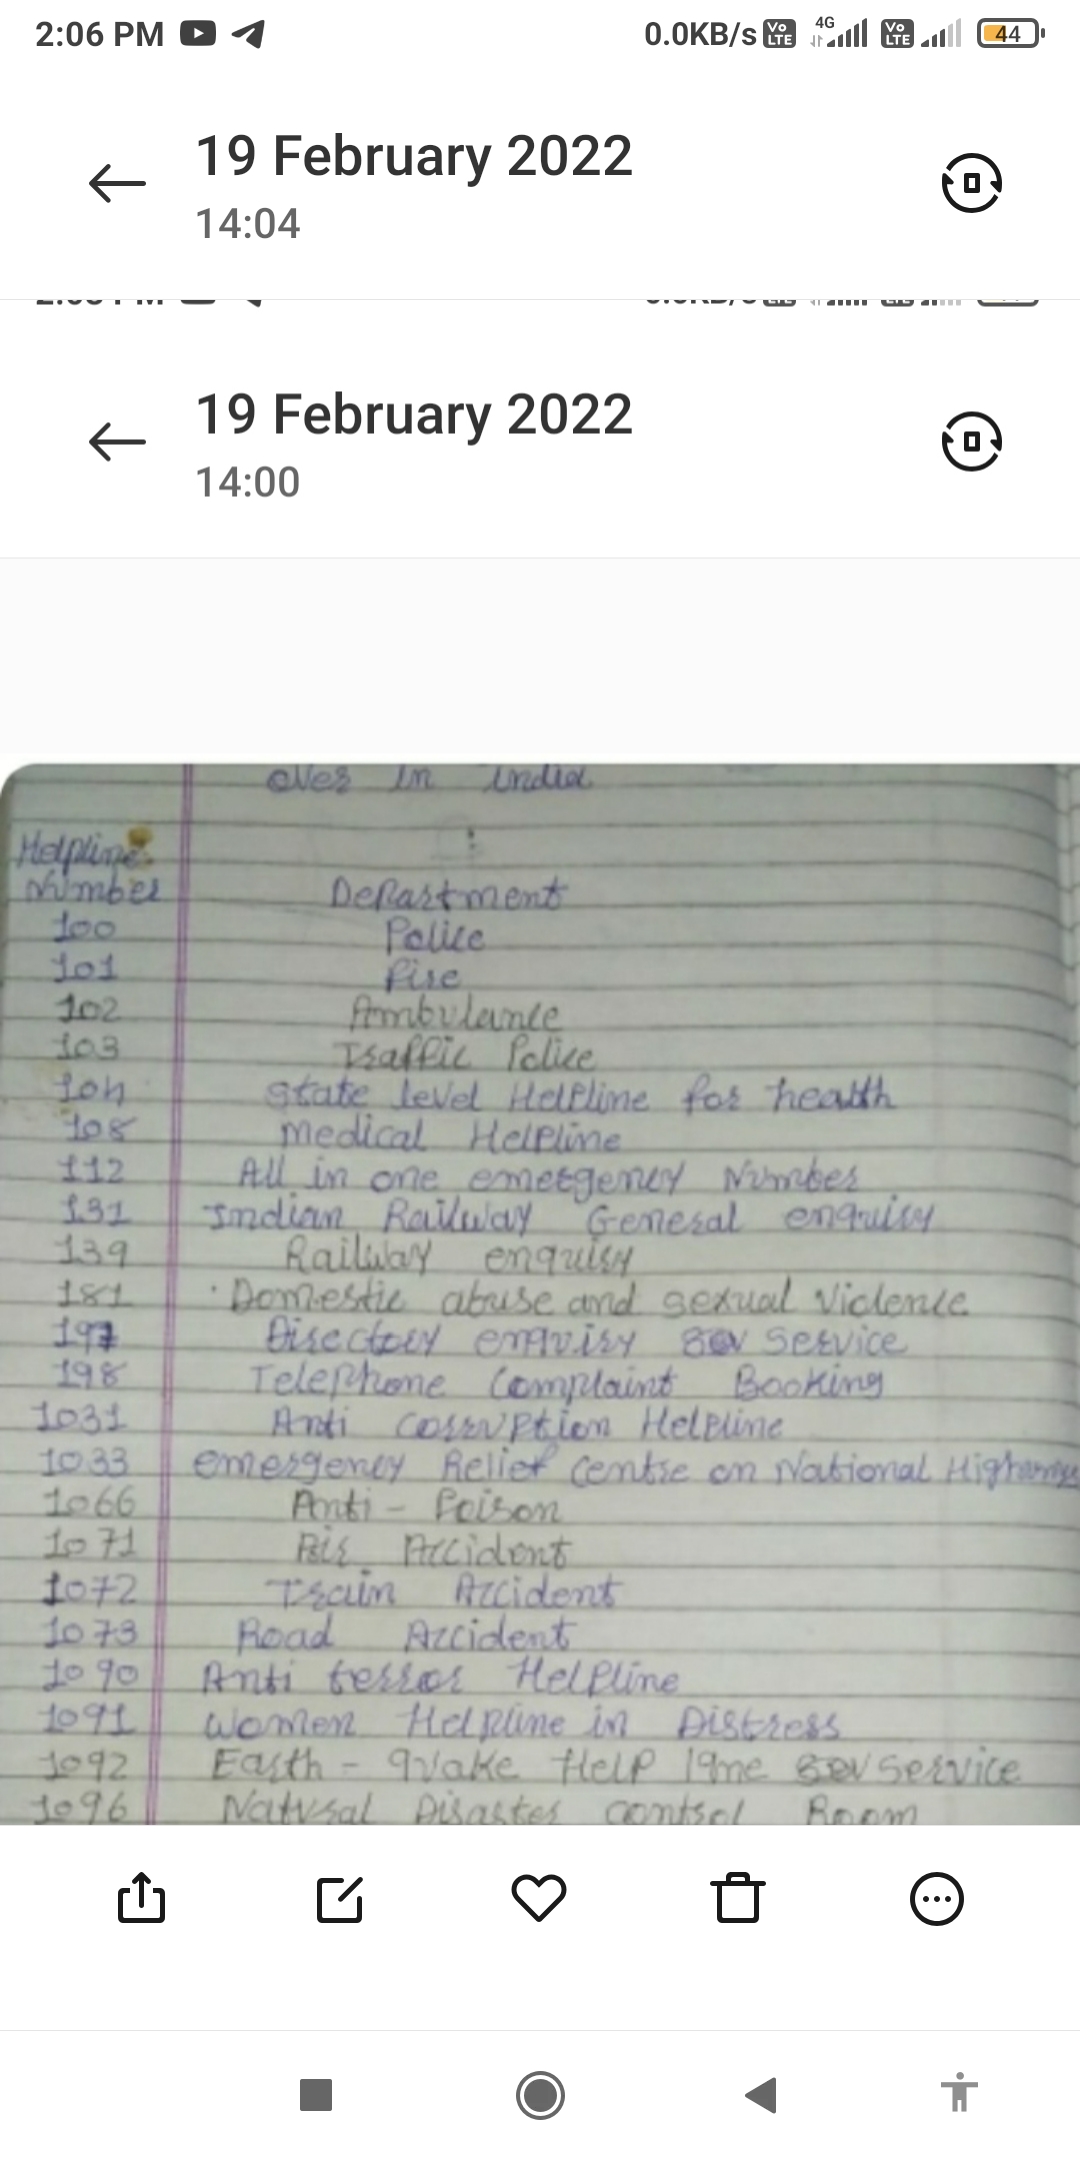 2:06 PM 0.0KB/s Vo LTE 4G Vo LTE 44
19 February 2022
14:04
19 February 2022
14:00
over in india
Helpline
Number Department
100 Police
101 Fire
102 Ambulance
103 Traffic Police
104 State level Helpline for health
108 Medical Helpline
112 All in one emergency Number
131 Indian Railway General enquiry
139 Railway enquiry
181 Domestic abuse and sexual Violence
197 Directory enquiry Service
198 Telephone Complaint Booking
1031 Anti Corruption Helpline
1033 emergency Relief Centre on National Highways
1066 Anti - Poison
1071 Air Accident
1072 Train Accident
1073 Road Accident
1090 Anti terror Helpline
1091 Women Helpline in Distress
1092 Earth - quake Help Service
1096 Natural Disaster control Room